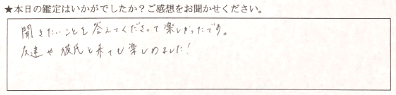 ★本日の鑑定はいかがでしたか？ご感想をお聞かせください。
聞きたいことを答えてくださって楽しかったです。
友達や彼氏と来ても楽しめました！